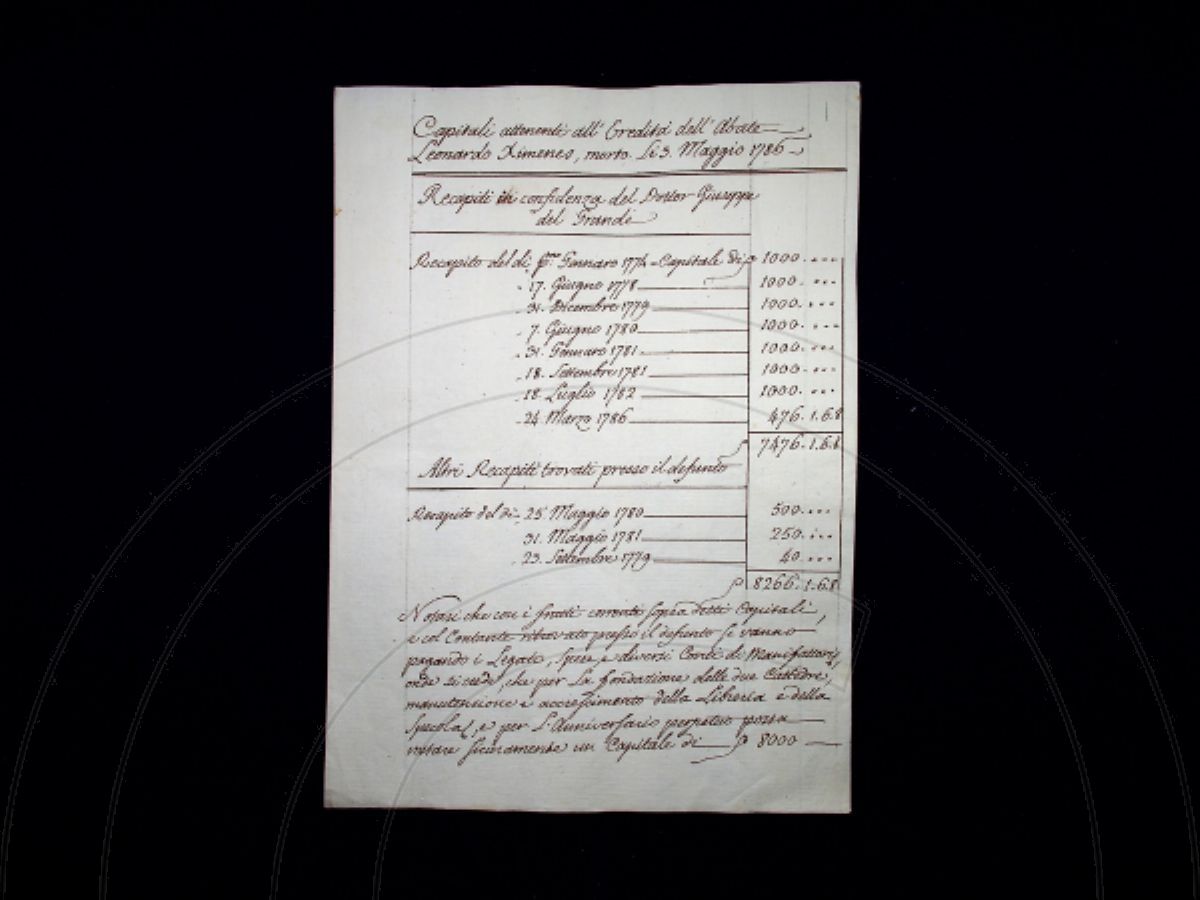 Capitali attenenti all' Eredità dell' Abate
Leonardo Ximenes, morto li 3. Maggio 1786
Recapiti in confidenza del Dottor Giuseppe
del Grande
Recapito del dì p.mo Gennaro 1774 - Capitale di 1000. ...
17. Giugno 1778 1000. ...
31. Dicembre 1779 1000. ...
7. Giugno 1780 1000. ...
31. Gennaro 1781 1000. ...
18. Settembre 1781 1000. ...
18. Luglio 1782 1000. ...
24. Marzo 1786 476. 1. 6. 8
7476. 1. 6. 8
Altri Recapiti trovati presso il defunto
Recapito del dì 25. Maggio 1780 500. ...
31. Maggio 1781 250. ...
23. Settembre 1779 40. ...
8266. 1. 6. 8
Notasi che con i frutti correnti sopra detti Capitali,
e col Contante ritrovato presso il defunto si vanno
pagando i Legati, spese, e diversi Conti di Manifattori,
onde si crede, che per la fondazione delle due Cattedre,
manutenzione e accrescimento della Libreria e della
Specola, e per l'Anniversario perpetuo possa
restare sicuramente un Capitale di 8000